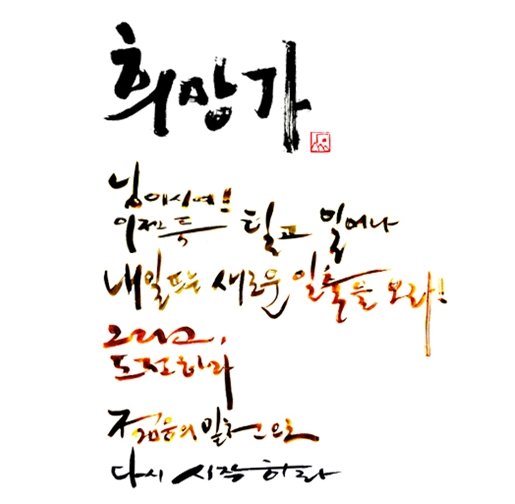 희망가
님이시여!!
이젠 툭 털고 일어나
내일 뜨는 새로운 일출을 보라!
그리고,
도전하라
젊음의 밑천으로
다시 시작하라